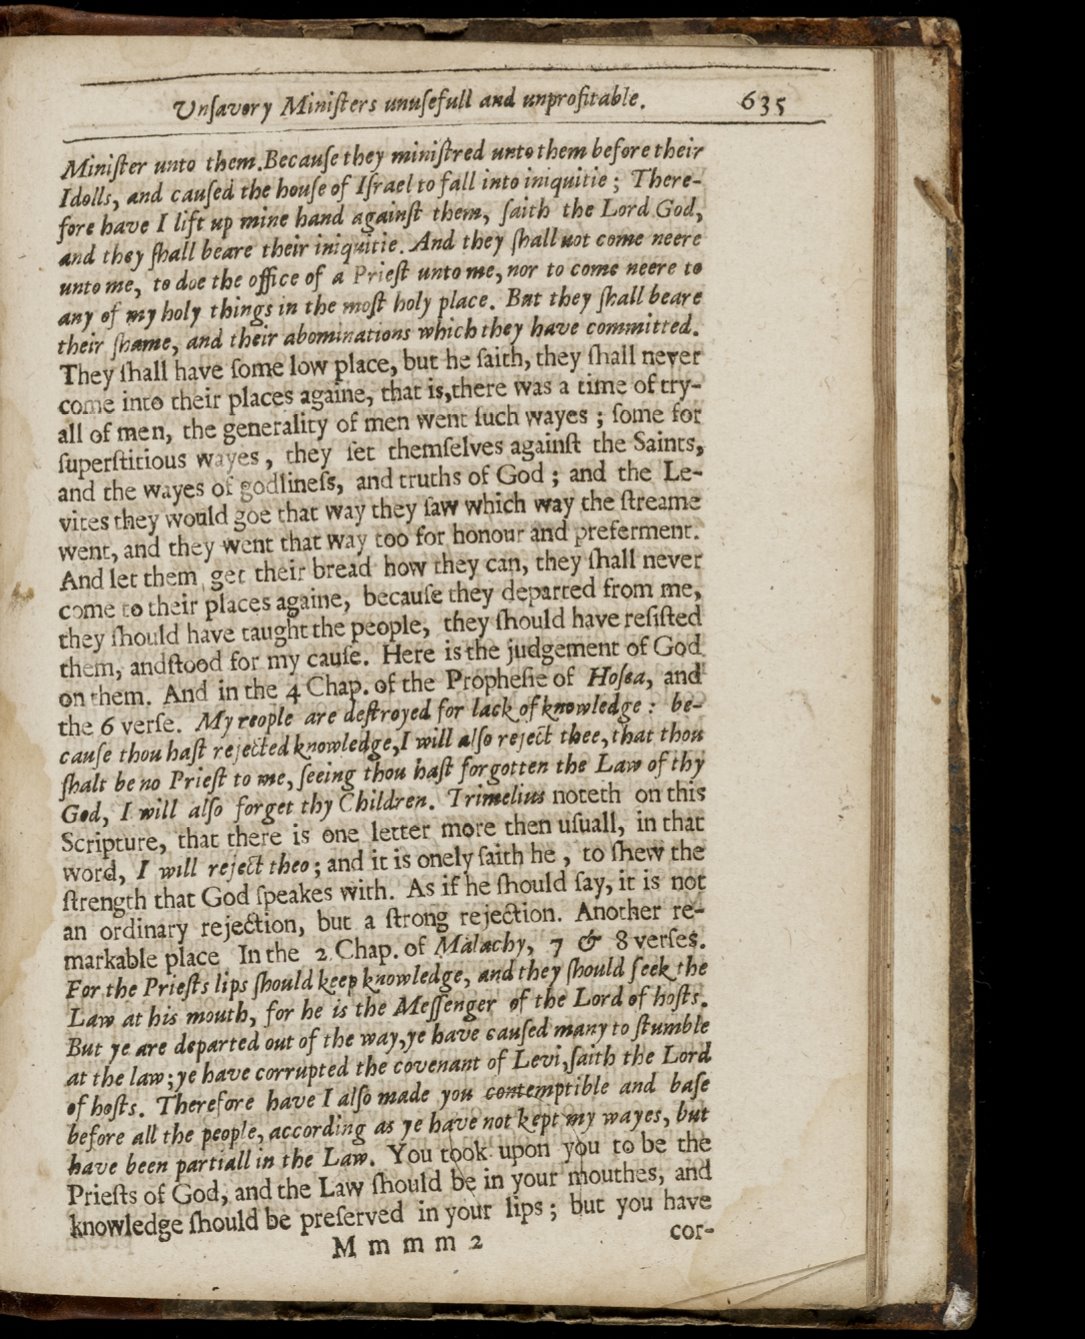 Unſavory Miniſters unuſefull and unprofitable. 635
Miniſter unto them. Becauſe they miniſtred unto them before their
Idolls, and cauſed the houſe of Iſrael to fall into iniquitie; There-
fore have I lift up mine hand againſt them, ſaith the Lord God,
and they ſhall beare their iniquitie. And they ſhall not come neere
unto me, to doe the office of a Prieſt unto me, nor to come neere to
any of my holy things in the moſt holy place. But they ſhall beare
their ſhame, and their abominations which they have committed.
They ſhall have ſome low place, but he ſaith, they ſhall never
come into their places againe, that is, there was a time of try-
all of men, the generality of men went ſuch wayes; ſome for
ſuperſtitious wayes, they ſet themſelves againſt the Saints,
and the wayes of godlineſs, and truths of God; and the Le-
vites they would goe that way they ſaw which way the ſtreame
went, and they went that way too for honour and preferment.
And let them get their bread how they can, they ſhall never
come to their places againe, becauſe they departed from me,
they ſhould have taught the people, they ſhould have reſiſted
them, and ſtood for my cauſe. Here is the judgement of God
on them. And in the 4 Chap. of the Propheſie of Hoſea, and
the 6 verſe. My people are deſtroyed for lack of knowledge: be-
cauſe thou haſt rejected knowledge, I will alſo reject thee, that thou
ſhalt be no Prieſt to me, ſeeing thou haſt forgotten the Law of thy
God, I will alſo forget thy Children. Trimelius noteth on this
Scripture, that there is one letter more then uſuall, in that
word, I will reject theo; and it is onely ſaith he, to ſhew the
ſtrength that God ſpeakes with. As if he ſhould ſay, it is not
an ordinary rejection, but a ſtrong rejection. Another re-
markable place In the 2 Chap. of Malachy, 7 & 8 verſes.
For the Prieſts lips ſhould keep knowledge, and they ſhould ſeek the
Law at his mouth, for he is the Meſſenger of the Lord of hoſts.
But ye are departed out of the way, ye have cauſed many to ſtumble
at the law; ye have corrupted the covenant of Levi, ſaith the Lord
of hoſts. Therefore have I alſo made you contemptible and baſe
before all the people, according as ye have not kept my wayes, but
have been partiall in the Law. You took upon you to be the
Prieſts of God, and the Law ſhould be in your mouthes, and
knowledge ſhould be preſerved in your lips; but you have
M m m m 2 cor-